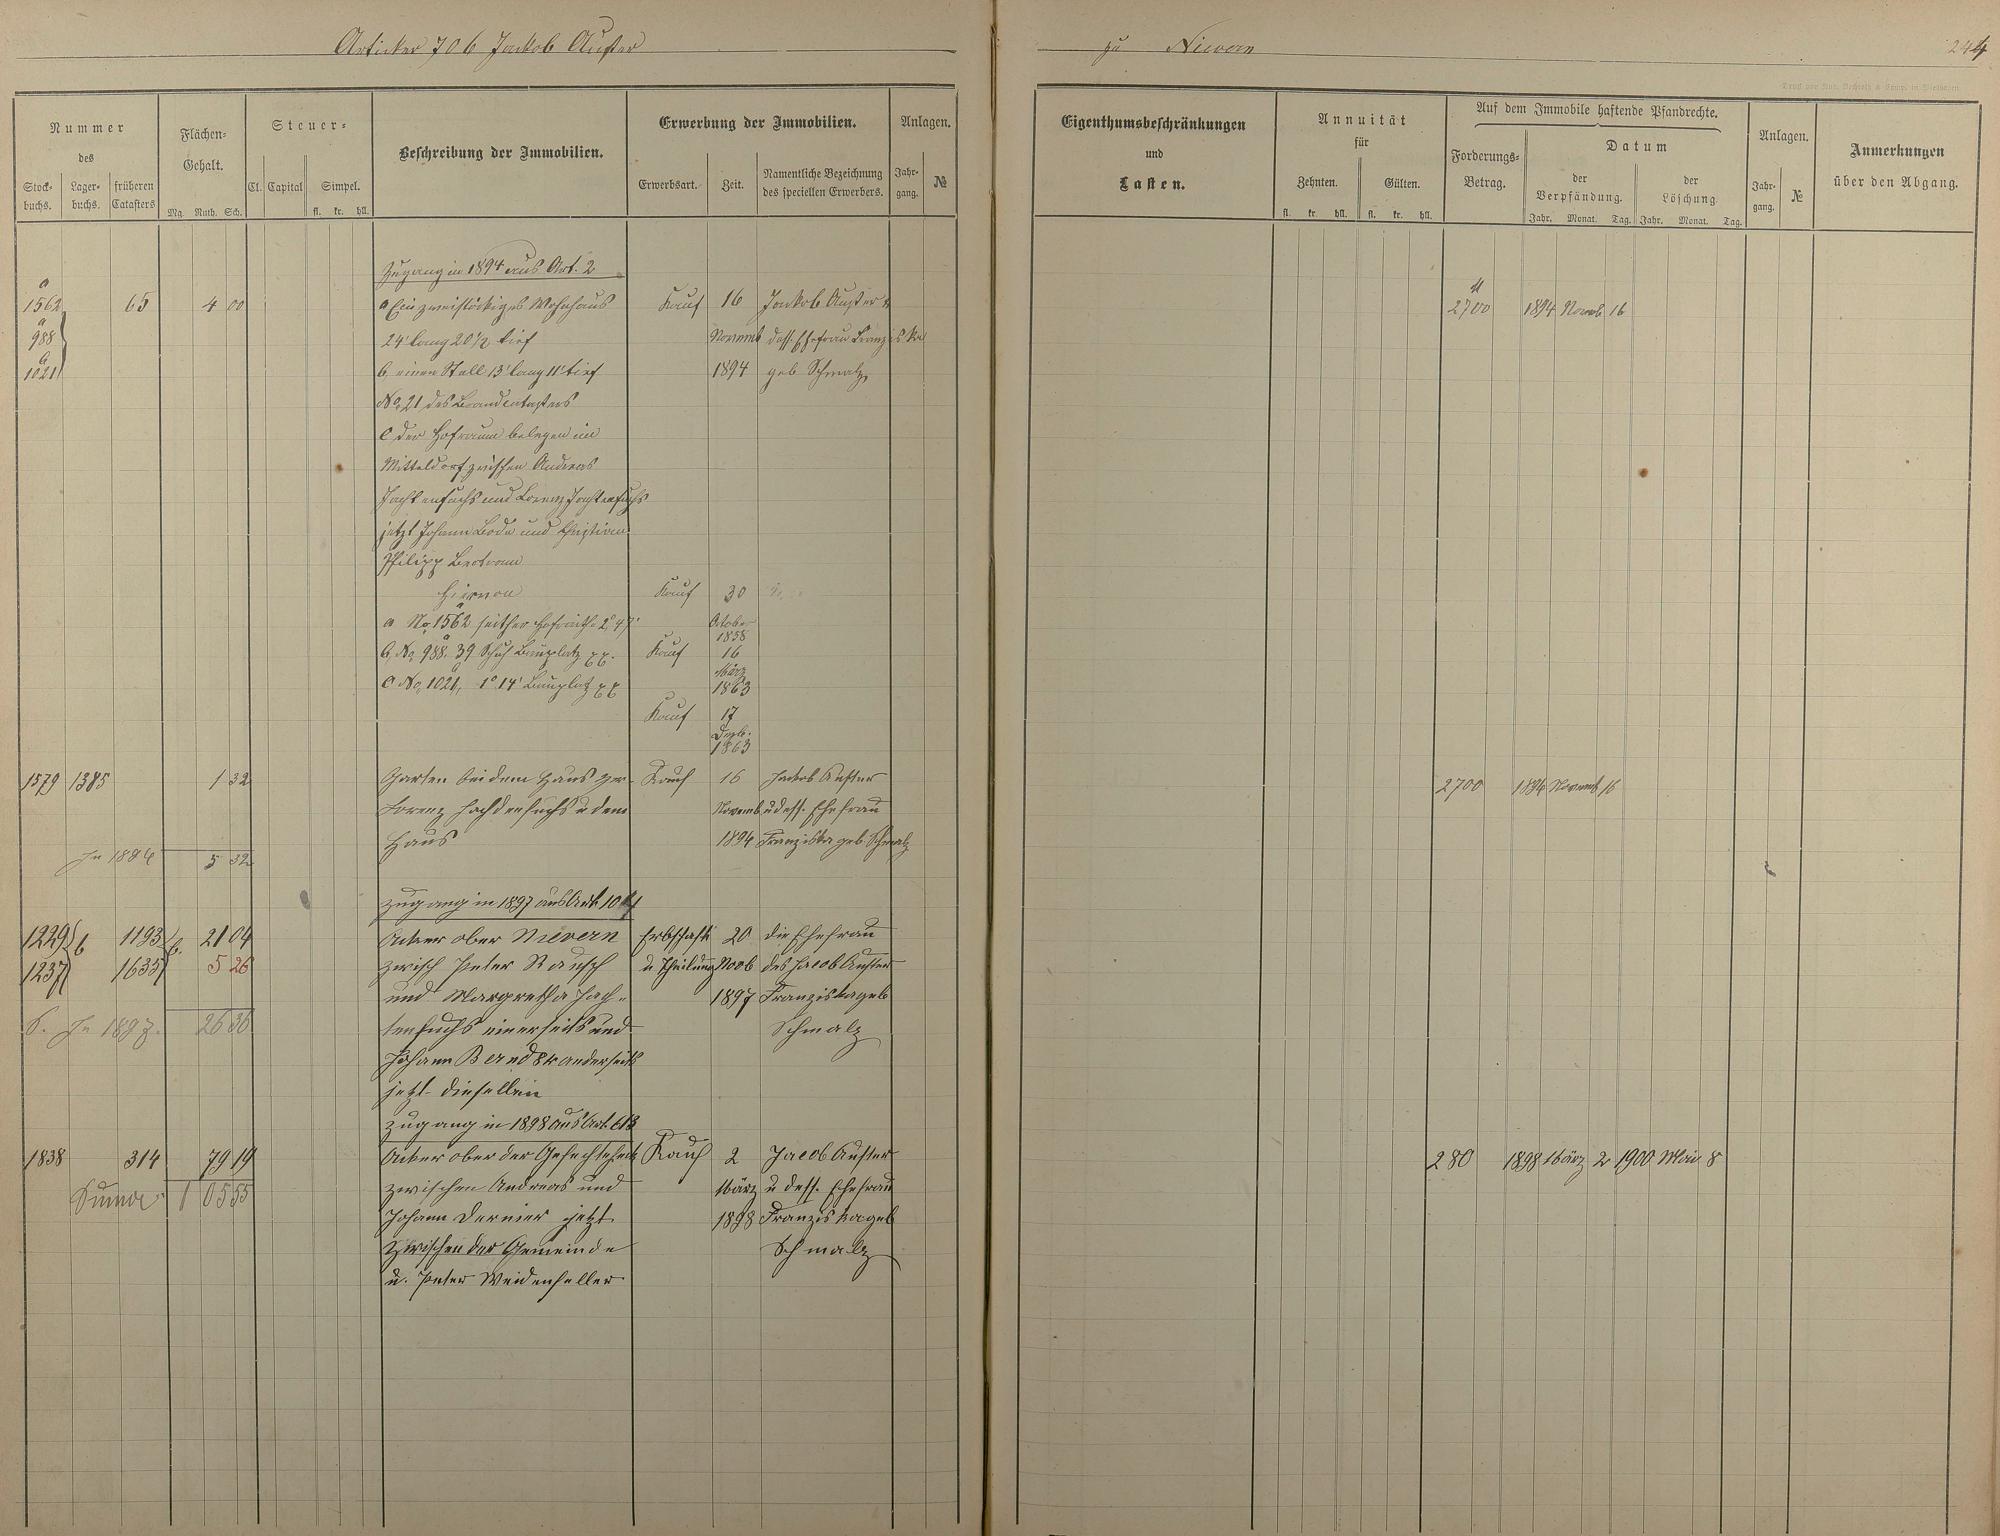 Artikel 706 Jackob Auster
zu Nievern
244
Nummer
des
Stock-
buchs.
Lager-
buchs.
früheren
Catasters
Flächen-
Gehalt.
Mg. Ruth. Sch.
Steuer-
Cl. Capital Simpel.
fl. kr. hll.
Beschreibung der Immobilien.
Erwerbung der Immobilien.
Erwerbsart. Zeit.
Namentliche Bezeichnung
des speciellen Erwerbers.
Anlagen.
Jahr-
gang. №
Eigenthumsbeschränkungen
und
Lasten.
Annuität
für
Zehnten. Gülten.
fl. kr. hll. fl. kr. hll.
Auf dem Immobile haftende Pfandrechte.
Forderungs-
Betrag.
Datum
der
Verpfändung.
Jahr. Monat. Tag.
der
Löschung
Jahr. Monat. Tag.
Anlagen.
Jahr-
gang. №
Anmerkungen
über den Abgang.
Zugang in 1894 aus Art. 2
a
1562 65 4 00 a Ein zweistöckiges Wohnhaus Kauf 16 Jackob Auster u 2700 1894 Novemb 16
a
988 24' lang 20½ tief Novemb dess. Ehefrau Franziska
a
1021 b, einen Stall 13' lang 11' tief 1894 geb Schmalz
No 21 des Brandcatasters
c der Hofraum belegen im
Mitteldorf zwischen Andreas
Jachtenfuchs und Lorenz Jachtenfuchs
jetzt Johann Bode und Christian
Philipp Bertram
hiervon Kauf 30
a No 1562 seither Hofraithe 2° 47' October
1858
b, No 988. 39 Schuh Bauplatz Kauf 16
März
c No, 1021, 1° 14' Bauplatz 1863
Kauf 17
Dezb.
1863
1579 1385 1 32 Garten bei dem Haus zw- Kauf 16 Jackob Auster 2700 1894 Novemb 16
Lorenz Jachdenfuchs u dem Novemb u dess. Ehefrau
Haus 1894 Franziska geb. Schmalz
In 1894 5 32
Zugang in 1897 aus Art. 104
1229 b 1193 b. 21 04 Acker ober Nievern Erbschaft 20 die Ehefrau
1237 1635 5 26 zwisch Peter Rausch u Theilung Novb des Jacob Auster
und Margretha Jach- 1897 Franziska geb
S. In 1897. 26 36 tenfuchs einerseits und Schmalz
Johann Bernd 8r anderseits
jetzt dieselben
Zugang in 1898 aus Art. 613
1838 314 79 19 Acker ober der Kauf 2 Jacob Auster 280 1898 März 2 1900 Mai 8
Suma 1 05 55 zwischen Andreas und März u dess. Ehefrau
Johann Dernier jetzt 1898 Franziska geb
Zwischen der Gemeinde Schmalz
u. Peter Weidenfeller